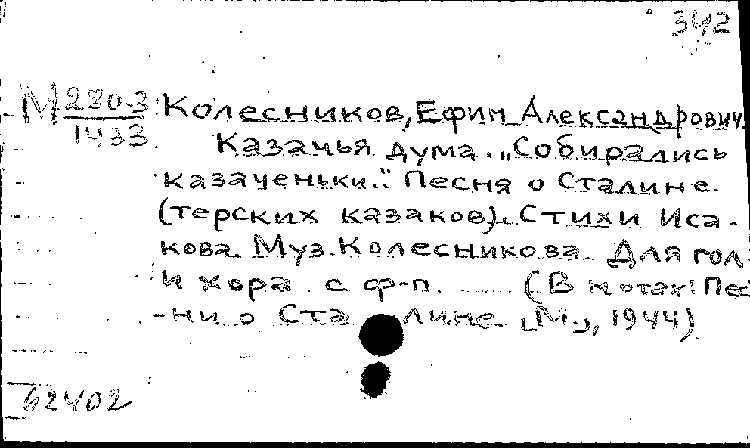 342
М 280-3 Колесников, Ефим Александрович
1433 Казачья дума. „Собирались
казаченьки." Песня о Сталине.
(терских казаков). Стихи Иса-
кова. Муз. Колесникова. Для гол
и хора с ф-п. (В нотах: Пес
-ни о Сталине. М., 1944)
62402